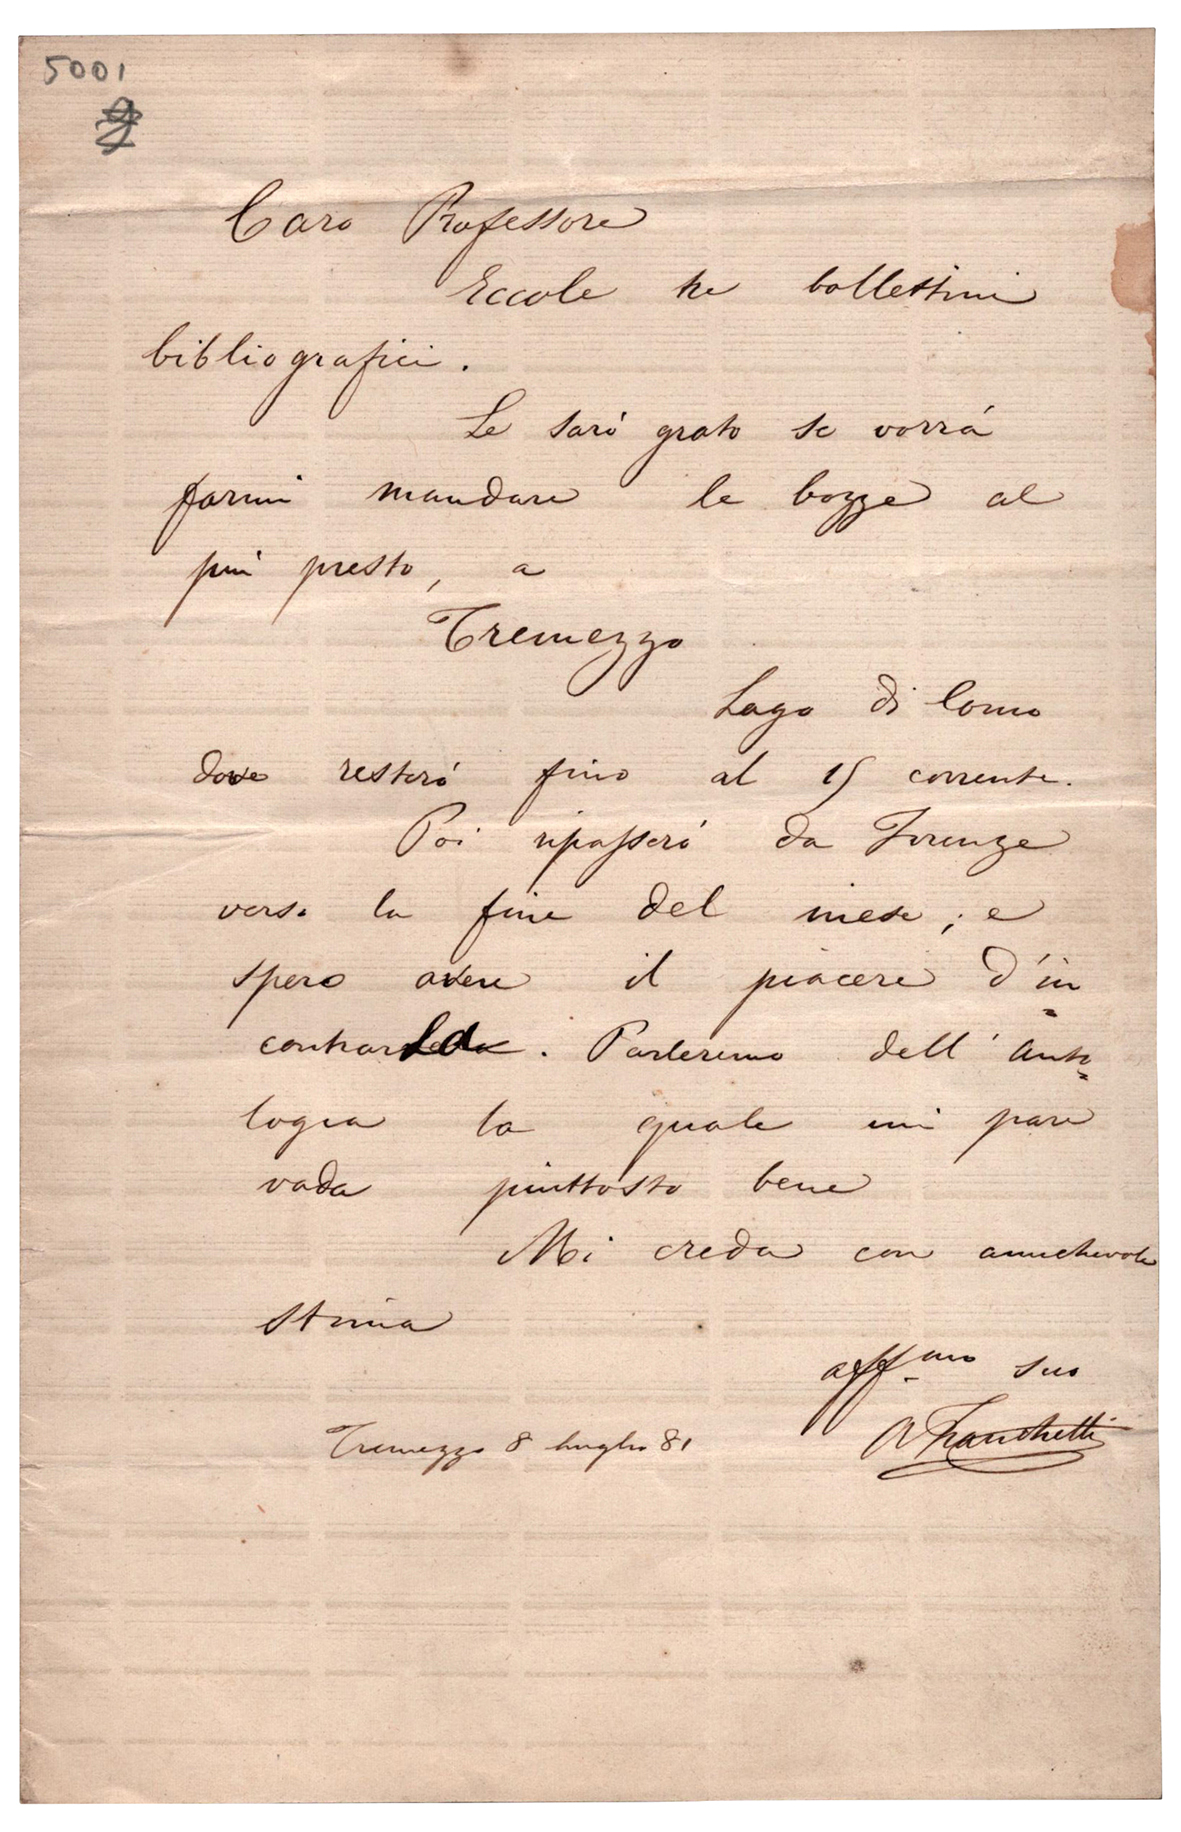 5001
Caro Professore
Eccole tre bollettini
bibliografici.
Le sarò grato se vorrà
farmi mandare le bozze al
più presto, a
Tremezzo
Lago di Como
dove resterò fino al 15 corrente.
Poi ripasserò da Firenze
verso la fine del mese; e
spero avere il piacere d'in=
contrarLa. Parleremo dell'Anto=
logia la quale mi pare
vada piuttosto bene
Mi creda con amichevole
stima
affmo suo
Tremezzo 8 luglio 81 A Franchetti